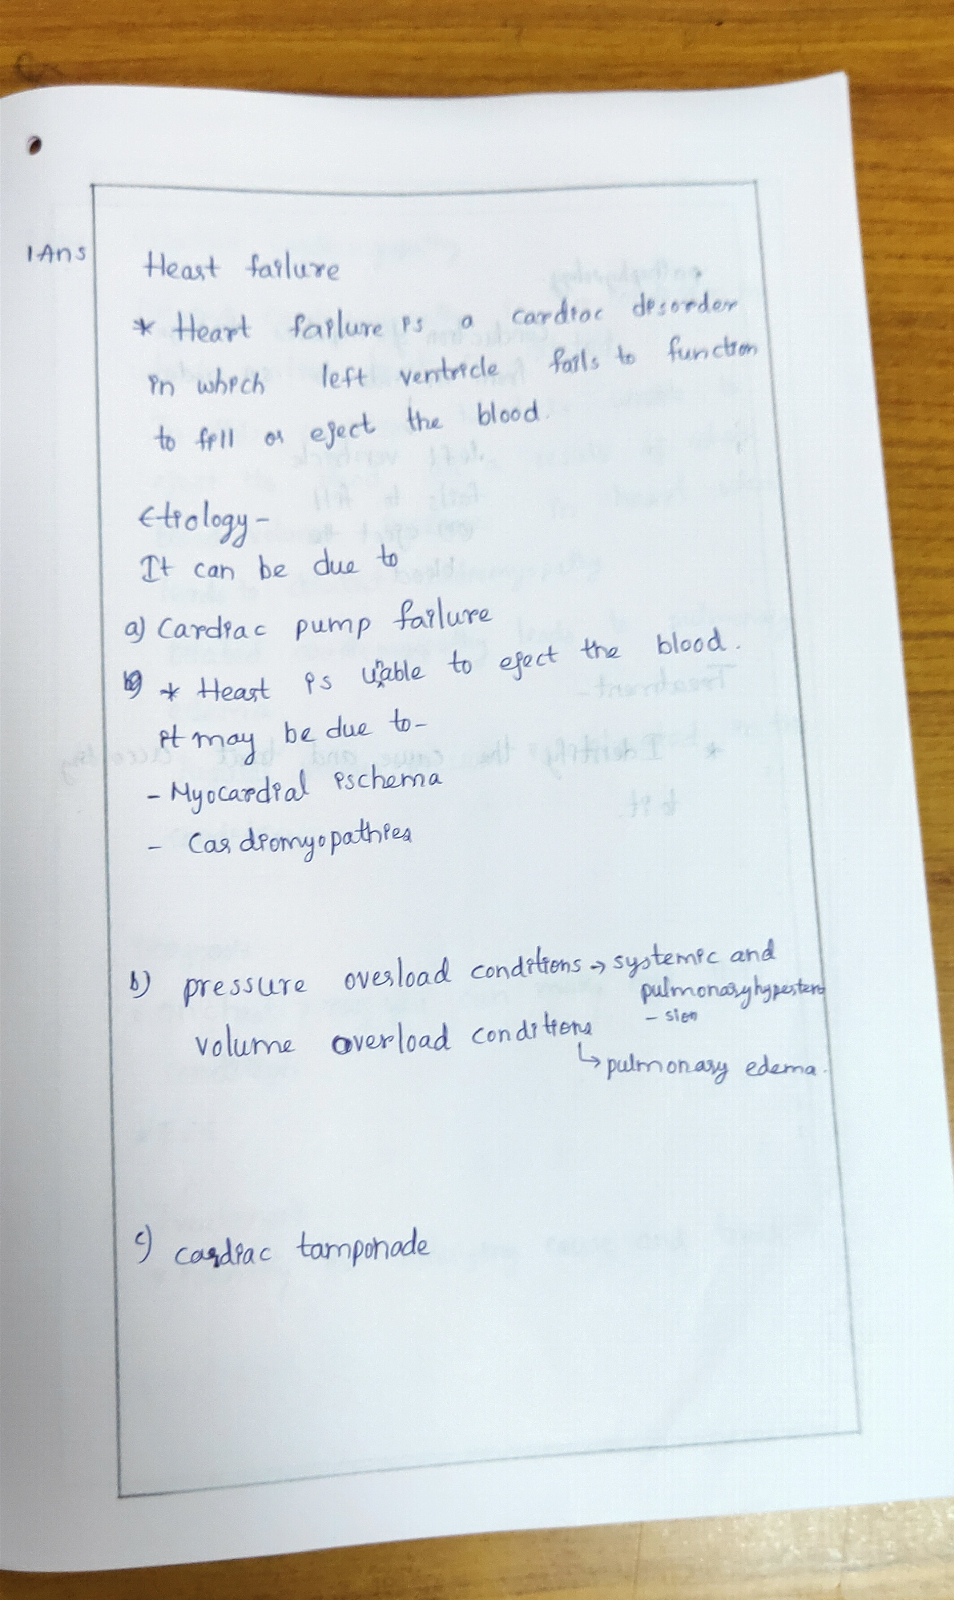 1 Ans
Heart failure
* Heart failure is a cardiac desorder
in which left ventricle fails to function
to fill or eject the blood.
Etiology -
It can be due to
a) Cardiac pump failure
* Heart is unable to eject the blood.
it may be due to -
- Myocardial ischema
- Cardiomyopathies
b) pressure overload conditions → systemic and
pulmonary hyperten
- sion
volume overload conditions
↳ pulmonary edema.
c) cardiac tamponade